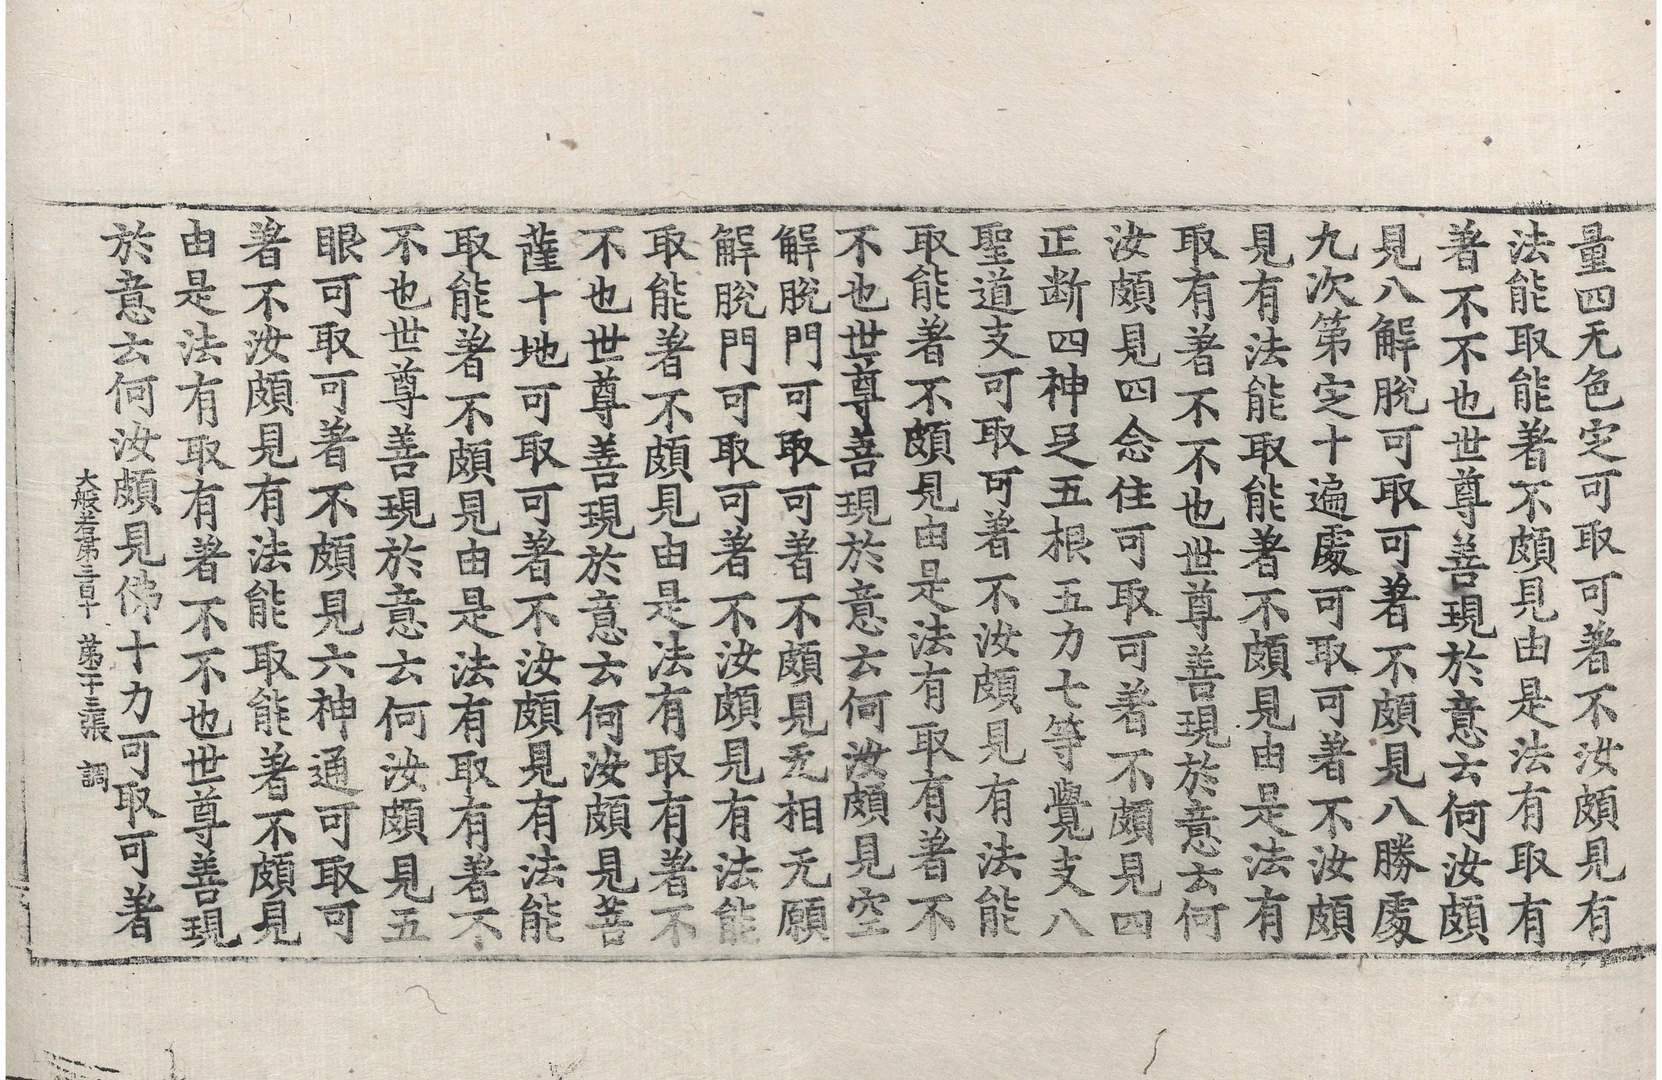 量四无色定可取可著不汝頗見有
法能取能著不頗見由是法有取有
著不不也世尊善現於意云何汝頗
見八解脫可取可著不頗見八勝處
九次第定十遍處可取可著不汝頗
見有法能取能著不頗見由是法有
取有著不不也世尊善現於意云何
汝頗見四念住可取可著不頗見四
正断四神足五根五力七等覺支八
聖道支可取可著不汝頗見有法能
取能著不頗見由是法有取有著不
不也世尊善現於意云何汝頗見空
解脫門可取可著不頗見无相无願
解脫門可取可著不汝頗見有法能
取能著不頗見由是法有取有著不
不也世尊善現於意云何汝頗見菩
薩十地可取可著不汝頗見有法能
取能著不頗見由是法有取有著不
不也世尊善現於意云何汝頗見五
眼可取可著不頗見六神通可取可
著不汝頗見有法能取能著不頗見
由是法有取有著不不也世尊善現
於意云何汝頗見佛十力可取可著
大般若第三百十 第十三張 調